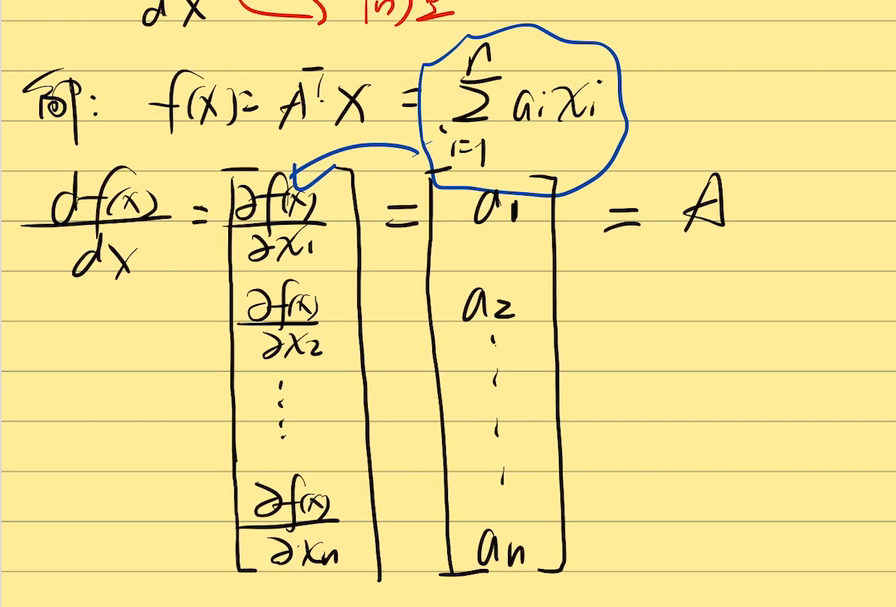 dx
例: f(x) = A^T X = \sum_{i=1}^{n} a_i x_i
\frac{df(x)}{dx} = \begin{bmatrix} \frac{\partial f(x)}{\partial x_1} \\ \frac{\partial f(x)}{\partial x_2} \\ \vdots \\ \frac{\partial f(x)}{\partial x_n} \end{bmatrix} = \begin{bmatrix} a_1 \\ a_2 \\ \vdots \\ a_n \end{bmatrix} = A